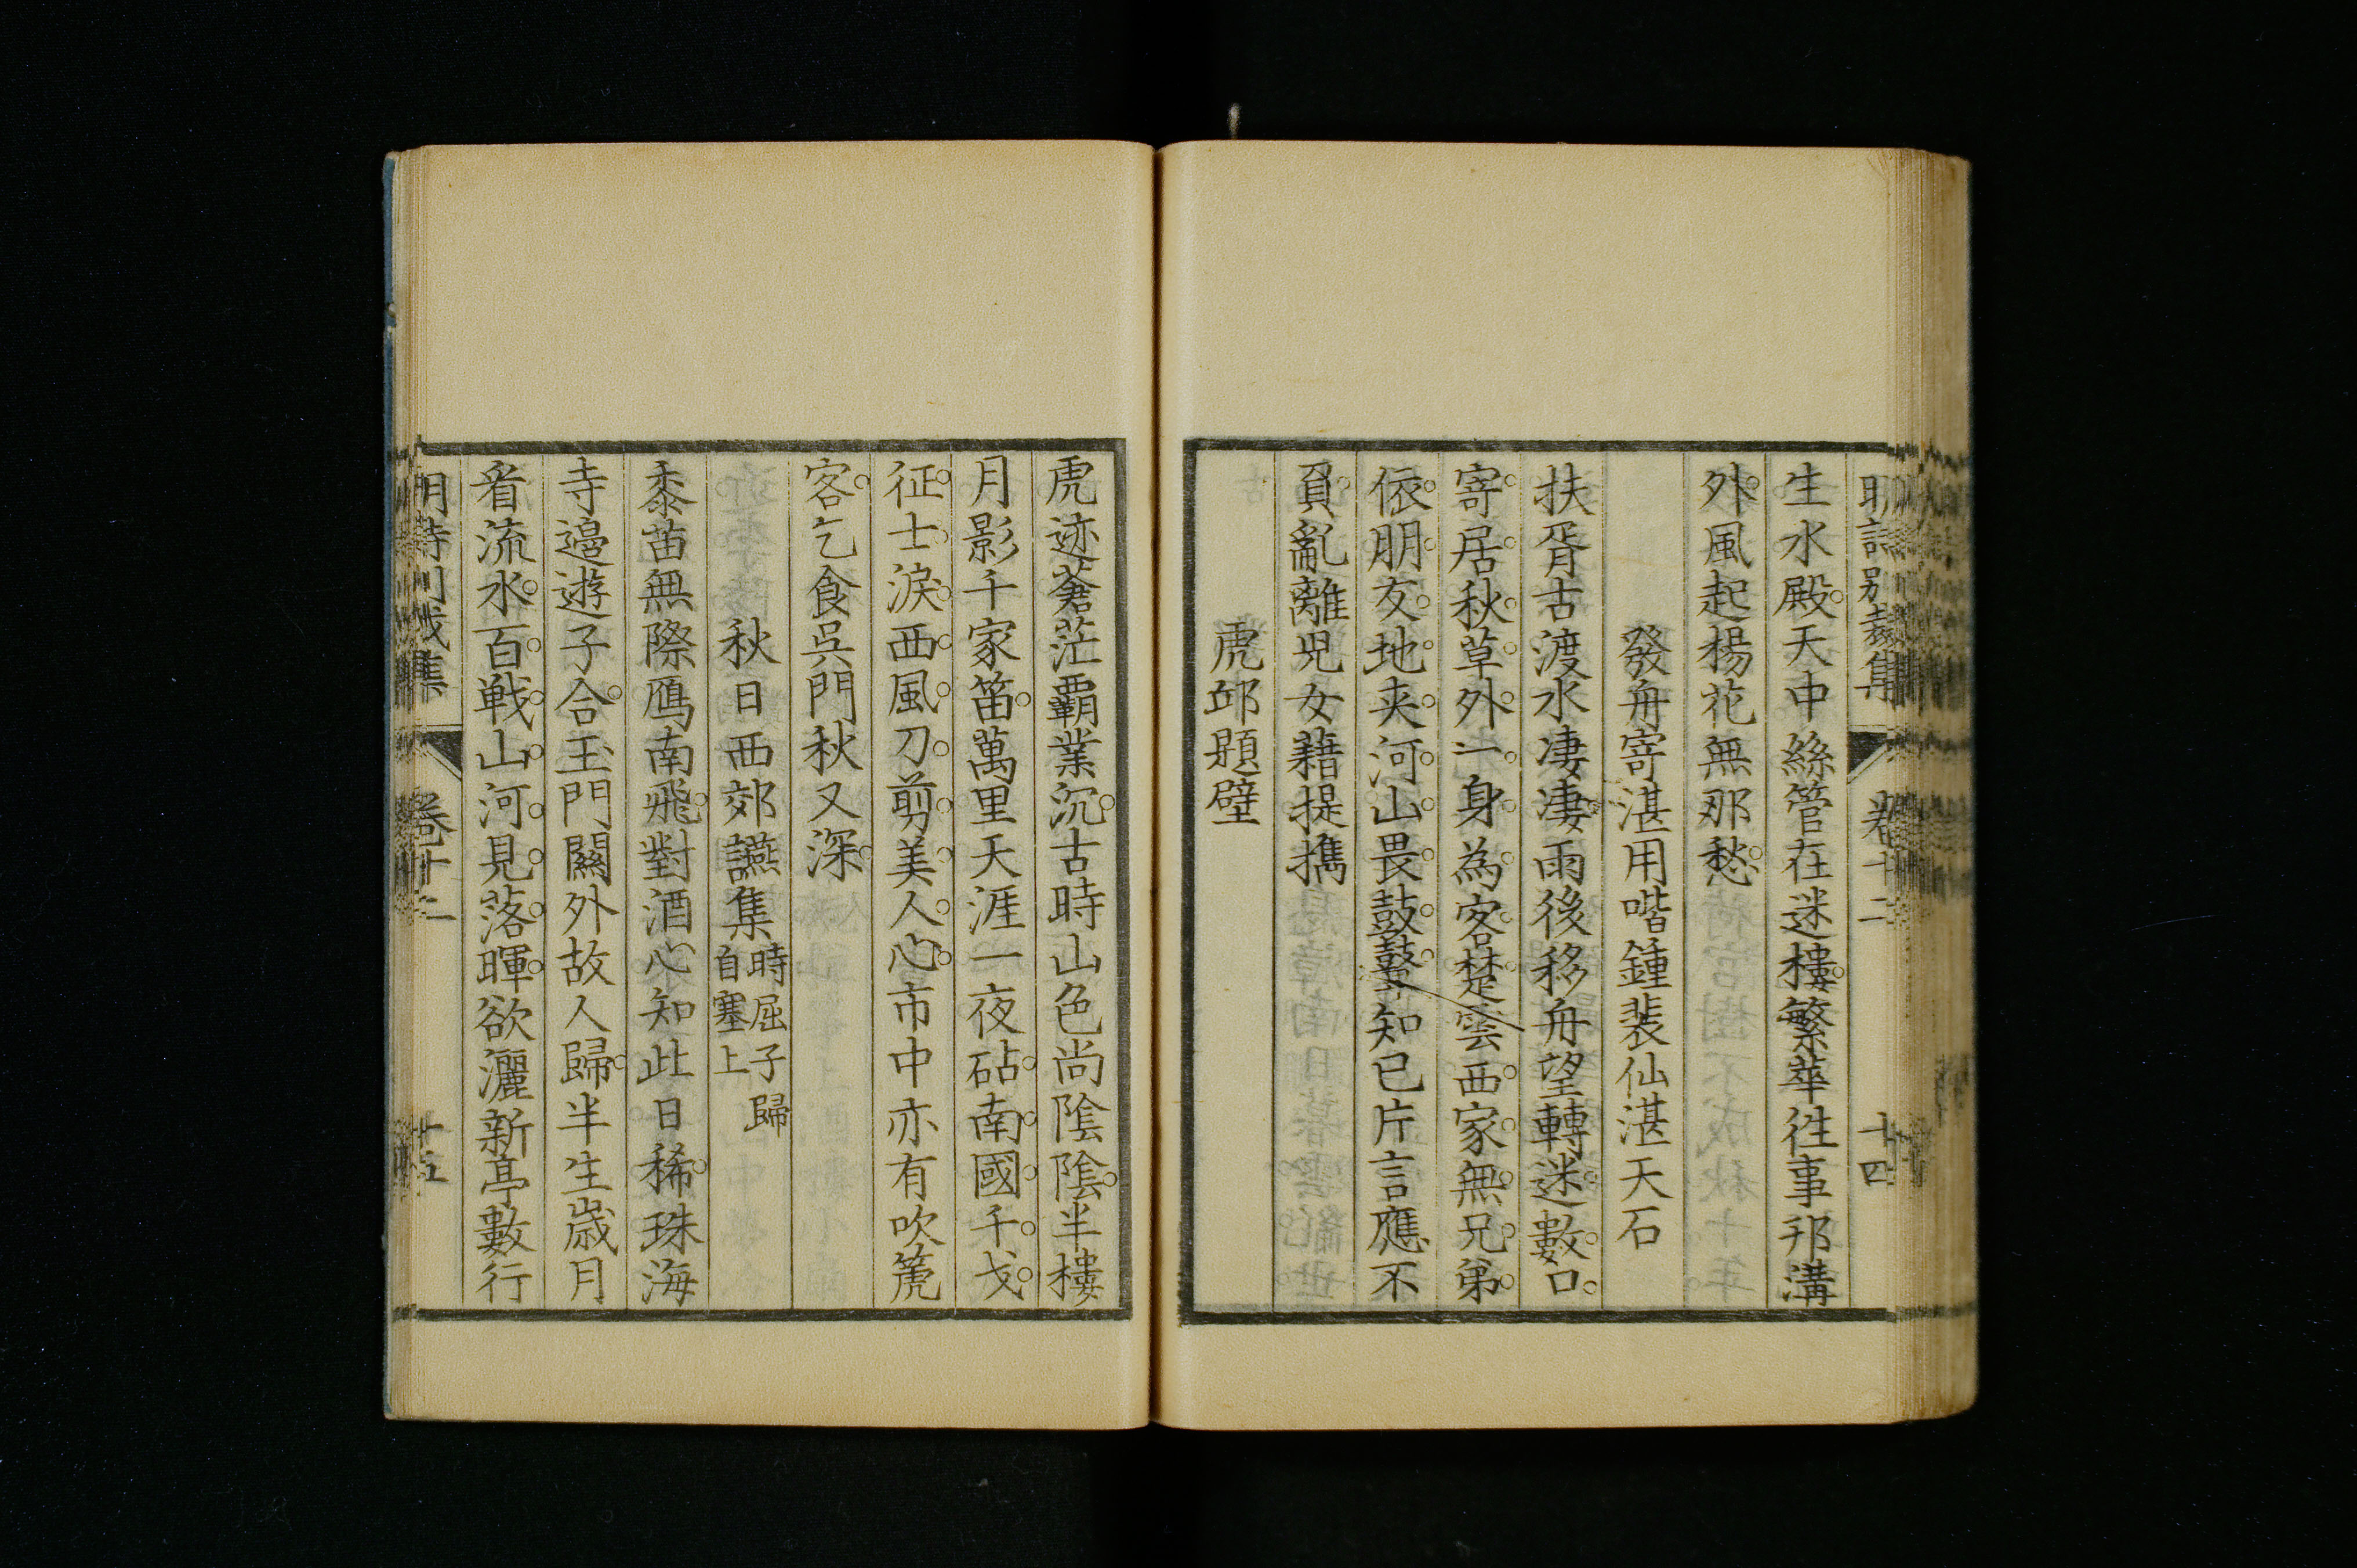 明詩別裁集 卷十二 十四
生水殿天中絲管在迷樓繁華往事邗溝
外風起楊花無那愁
發舟寄湛用喈鍾裴仙湛天石
扶胥古渡水凄凄雨後移舟望轉迷數口
寄居秋草外一身為客楚雲西家無兄弟
依朋友地夾河山畏鼓鼙知已片言應不
負亂離兒女藉提攜
虎邱題壁
虎迹蒼茫覇業沉古時山色尚陰陰半樓
月影千家笛萬里天涯一夜砧南國干戈
征士淚西風刀剪美人心市中亦有吹篪
客乞食吳門秋又深
秋日西郊讌集時屈子歸自塞上
黍苗無際鴈南飛對酒心知此日稀珠海
寺邉遊子合玉門關外故人歸半生歲月
看流水百戰山河見落暉欲灑新亭數行
明詩別裁集 卷十二 十五